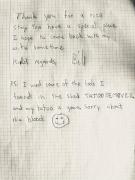 Thank you for a nice
stay. You have a special place
I hope to come back with my
wife sometime.
Kind regards, Bill
PS: I used some of the tools I
found in the shed
and my
sorry about
the blood